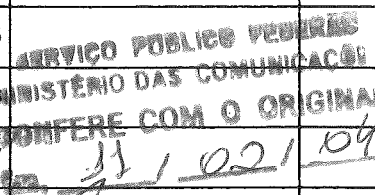 SERVIÇO PÚBLICO FEDERAL
MINISTÉRIO DAS COMUNICAÇÕ
CONFERE COM O ORIGINA
Em, 11 / 02 / 04